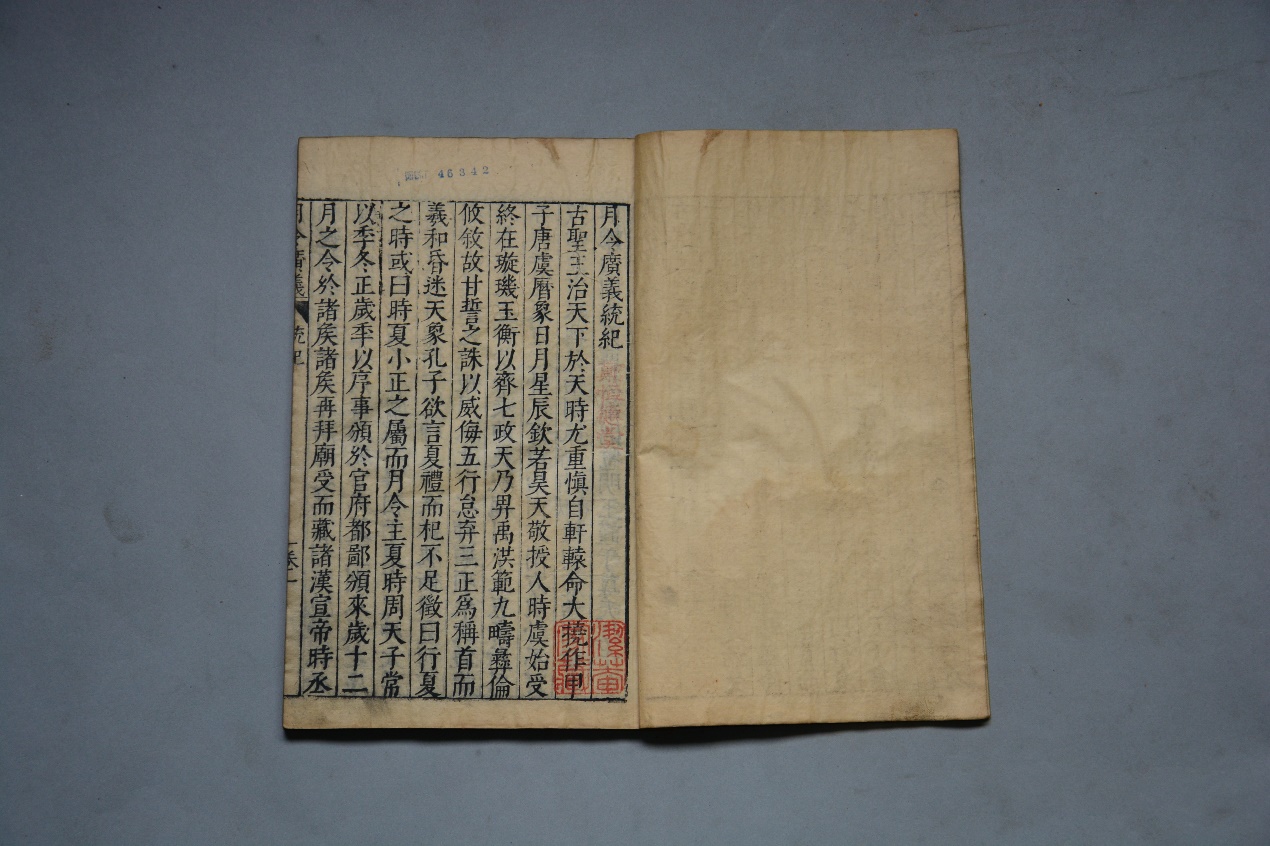 月令廣義統紀
古聖王治天下於天時尤重愼自軒轅命大撓作甲
子唐虞曆象日月星辰欽若昊天敬授人時虞始受
終在璇璣玉衡以齊七政天乃畀禹洪範九疇彝倫
攸敘故甘誓之誅以威侮五行怠弃三正爲稱首而
羲和昏迷天象孔子欲言夏禮而杞不足徵曰行夏
之時或曰時夏小正之屬而月令主夏時周天子常
以季冬正歲年以序事頒於官府都鄙頒來歲十二
月之令於諸矦諸矦再拜廟受而藏諸漢宣帝時丞
月令廣義
統紀
卷一
46342